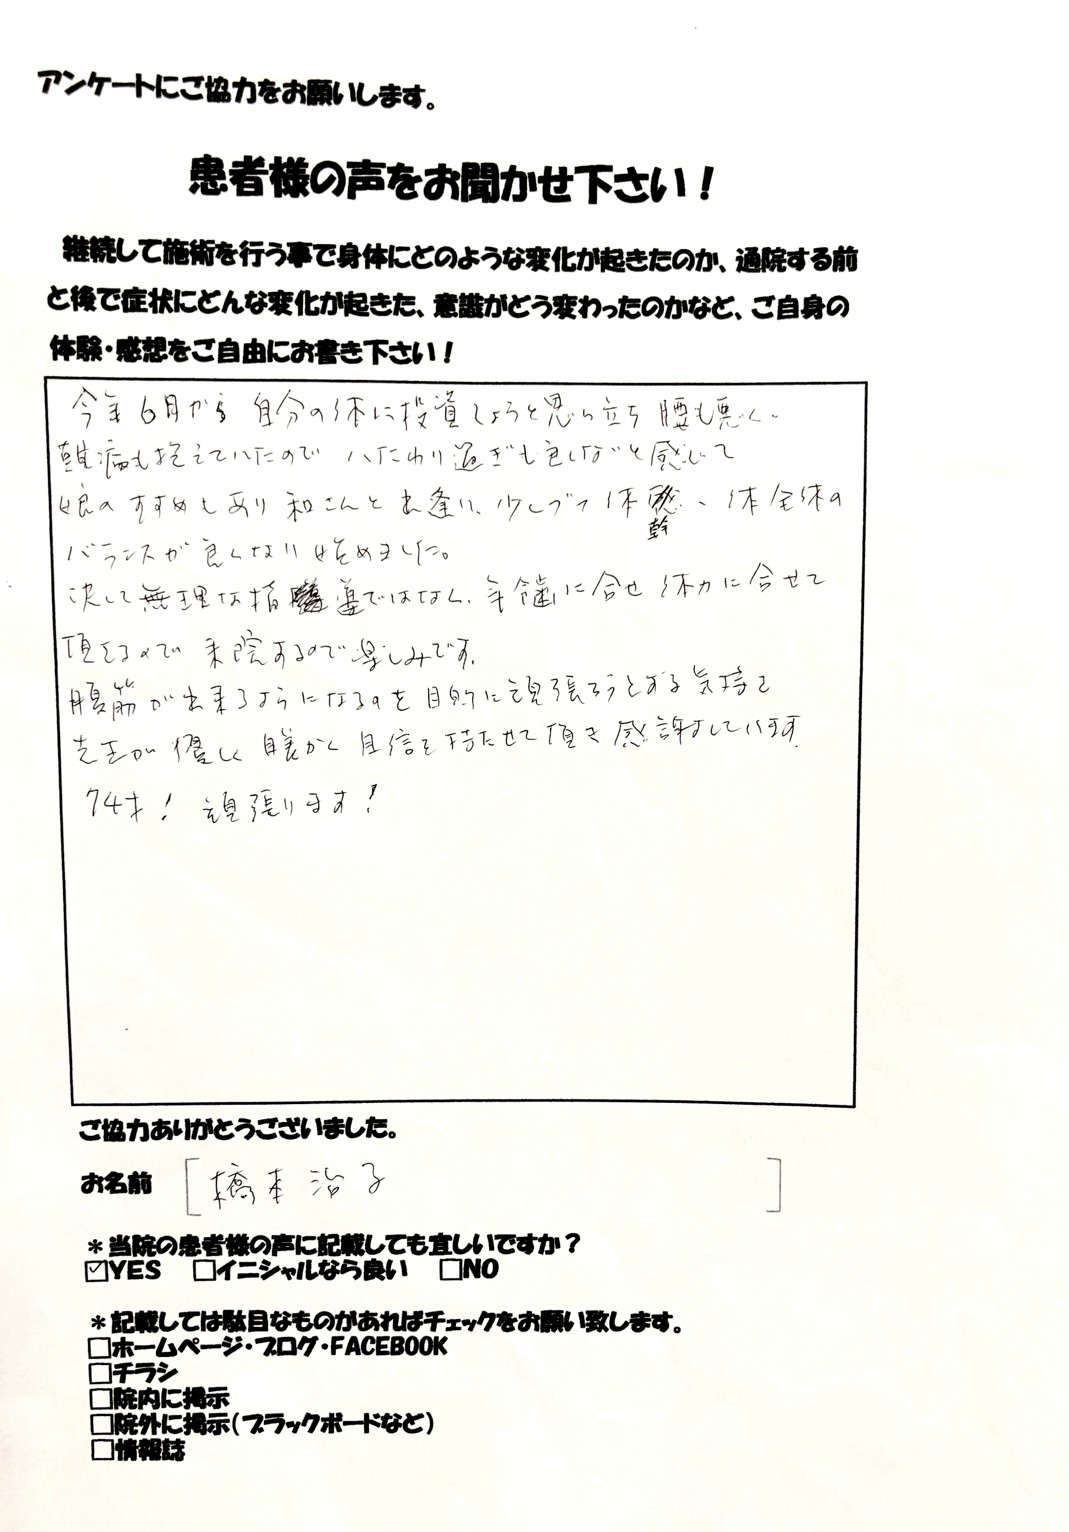 アンケートにご協力をお願いします。
患者様の声をお聞かせ下さい！
継続して施術を行う事で身体にどのような変化が起きたのか、通院する前
と後で症状にどんな変化が起きた、意識がどう変わったのかなど、ご自身の
体験・感想をご自由にお書き下さい！
今年6月から 自分の体に投資しようと思い立ち 腰も悪く、
難病も抱えていたので いたわり過ぎも良しないと感じて
娘のすすめもあり 和さんと出逢い、少しづつ体幹、体全体の
バランスが良くなり始めました。
決して無理な指導ではなく、年齢に合せ 体力に合せて
頂るので 来院するので楽しみです。
腹筋が出来るようになるのを目的に頑張ろうとする気持を
先生が優しく 暖かく 自信を持たせて頂き感謝しています。
74才！ 頑張ります！
ご協力ありがとうございました。
お名前 [橋本 治子]
＊当院の患者様の声に記載しても宜しいですか？
☑YES □イニシャルなら良い □NO
＊記載しては駄目なものがあればチェックをお願い致します。
□ホームページ・ブログ・FACEBOOK
□チラシ
□院内に掲示
□院外に掲示（ブラックボードなど）
□情報誌